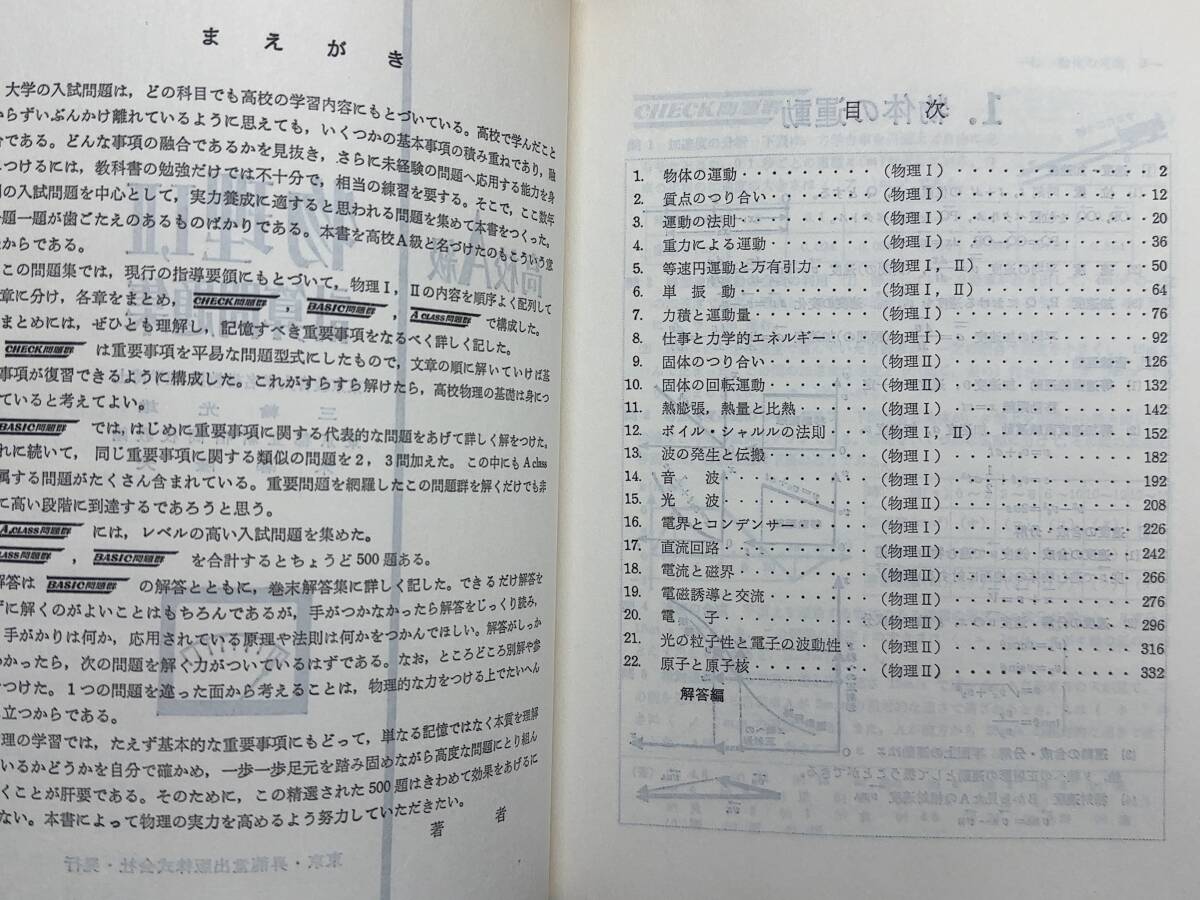 まえがき
大学の入試問題は，どの科目でも高校の学習内容にもとづいている。高校で学んだこと
からずいぶんかけ離れているように思えても，いくつかの基本事項の積み重ねであり，融
合である。どんな事項の融合であるかを見抜き，さらに未経験の問題へ応用する能力を身
につけるには，教科書の勉強だけでは不十分で，相当の練習を要する。そこで，ここ数年
の入試問題を中心として，実力養成に適すると思われる問題を集めて本書をつくった。
題一題が歯ごたえのあるものばかりである。本書を高校A級と名づけたのもこういう意
からである。
この問題集では，現行の指導要領にもとづいて，物理Ⅰ，Ⅱの内容を順序よく配列して
章に分け，各章をまとめ，CHECK問題群，BASIC問題群，A CLASS問題群で構成した。
まとめには，ぜひとも理解し，記憶すべき重要事項をなるべく詳しく記した。
CHECK問題群は重要事項を平易な問題型式にしたもので，文章の順に解いていけば基
事項が復習できるように構成した。これがすらすら解けたら，高校物理の基礎は身につ
ていると考えてよい。
BASIC問題群では，はじめに重要事項に関する代表的な問題をあげて詳しく解をつけた。
れに続いて，同じ重要事項に関する類似の問題を2，3問加えた。この中にもA class
属する問題がたくさん含まれている。重要問題を網羅したこの問題群を解くだけでも非
に高い段階に到達するであろうと思う。
A CLASS問題群には，レベルの高い入試問題を集めた。
CLASS問題群，BASIC問題群を合計するとちょうど500題ある。
解答はBASIC問題群の解答とともに，巻末解答集に詳しく記した。できるだけ解答を
ずに解くのがよいことはもちろんであるが，手がつかなかったら解答をじっくり読み，
手がかりは何か，応用されている原理や法則は何かをつかんでほしい。解答がしっか
わかったら，次の問題を解く力がついているはずである。なお，ところどころ別解や参
をつけた。1つの問題を違った面から考えることは，物理的な力をつける上でたいへん
立つからである。
理の学習では，たえず基本的な重要事項にもどって，単なる記憶ではなく本質を理解
いるかどうかを自分で確かめ，一歩一歩足元を踏み固めながら高度な問題にとり組ん
くことが肝要である。そのために，この精選された500題はきわめて効果をあげるに
ない。本書によって物理の実力を高めるよう努力していただきたい。
著者
目次
1. 物体の運動・・・・・・・・・（物理Ⅰ）・・・・・・・・・・・・2
2. 質点のつり合い・・・・・・・（物理Ⅰ）・・・・・・・・・・・・12
3. 運動の法則・・・・・・・・・（物理Ⅰ）・・・・・・・・・・・・20
4. 重力による運動・・・・・・・（物理Ⅰ）・・・・・・・・・・・・36
5. 等速円運動と万有引力・・・・（物理Ⅰ，Ⅱ）・・・・・・・・・・50
6. 単振動・・・・・・・・・・・（物理Ⅰ，Ⅱ）・・・・・・・・・・64
7. 力積と運動量・・・・・・・・（物理Ⅰ）・・・・・・・・・・・・76
8. 仕事と力学的エネルギー・・・（物理Ⅰ）・・・・・・・・・・・・92
9. 固体のつり合い・・・・・・・（物理Ⅱ）・・・・・・・・・・・・126
10. 固体の回転運動・・・・・・・（物理Ⅱ）・・・・・・・・・・・・132
11. 熱膨張，熱量と比熱・・・・・（物理Ⅰ）・・・・・・・・・・・・142
12. ボイル・シャルルの法則・・・（物理Ⅰ，Ⅱ）・・・・・・・・・・152
13. 波の発生と伝搬・・・・・・・（物理Ⅰ）・・・・・・・・・・・・182
14. 音波・・・・・・・・・・・・（物理Ⅰ）・・・・・・・・・・・・192
15. 光波・・・・・・・・・・・・（物理Ⅱ）・・・・・・・・・・・・208
16. 電界とコンデンサー・・・・・（物理Ⅰ）・・・・・・・・・・・・226
17. 直流回路・・・・・・・・・・（物理Ⅱ）・・・・・・・・・・・・242
18. 電流と磁界・・・・・・・・・（物理Ⅱ）・・・・・・・・・・・・266
19. 電磁誘導と交流・・・・・・・（物理Ⅱ）・・・・・・・・・・・・276
20. 電子・・・・・・・・・・・・（物理Ⅱ）・・・・・・・・・・・・296
21. 光の粒子性と電子の波動性・・（物理Ⅱ）・・・・・・・・・・・・316
22. 原子と原子核・・・・・・・・（物理Ⅱ）・・・・・・・・・・・・332
解答編